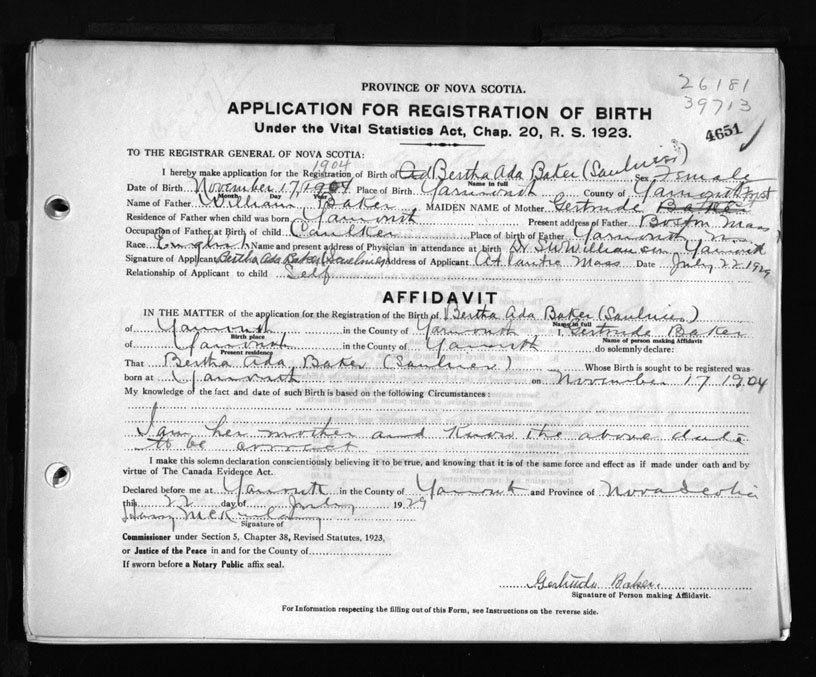 PROVINCE OF NOVA SCOTIA.
26181
39713
APPLICATION FOR REGISTRATION OF BIRTH
4651
Under the Vital Statistics Act, Chap. 20, R. S. 1923.
TO THE REGISTRAR GENERAL OF NOVA SCOTIA:
1904
I hereby make application for the Registration of Birth of Ad Bertha Ada Baker (Saulnier) Sex Female
Name in full
Date of Birth November 17, 1904 Place of Birth Yarmouth County of Yarmouth
Month Day Year
Name of Father William Baker MAIDEN NAME of Mother Gertrude Baker
Residence of Father when child was born Yarmouth Present address of Father Boston Mass
Occupation of Father at Birth of child Caulker Place of birth of Father Yarmouth
Race English Name and present address of Physician in attendance at birth Dr S W Williamson Yarmouth
Signature of Applicant Bertha Ada Baker (Saulnier) Address of Applicant Atlantic Mass Date July 22 1929
Relationship of Applicant to child Self
AFFIDAVIT
IN THE MATTER of the application for the Registration of the Birth of Bertha Ada Baker (Saulnier)
Name in full
of Yarmouth in the County of Yarmouth I, Gertrude Baker
Birth place
Name of person making Affidavit
of Yarmouth in the County of Yarmouth do solemnly declare:
Present residence
That Bertha Ada Baker (Saulnier) Whose Birth is sought to be registered was
born at Yarmouth on November 17 1904
My knowledge of the fact and date of such Birth is based on the following Circumstances:
I am her mother and know the above date
to be correct
I make this solemn declaration conscientiously believing it to be true, and knowing that it is of the same force and effect as if made under oath and by
virtue of The Canada Evidence Act.
Declared before me at Yarmouth in the County of Yarmouth and Province of Nova Scotia
this 22 day of July 1929
Harry
Signature of
Commissioner under Section 5, Chapter 38, Revised Statutes, 1923,
or Justice of the Peace in and for the County of
If sworn before a Notary Public affix seal.
Gertrude Baker.
Signature of Person making Affidavit.
For Information respecting the filling out of this Form, see Instructions on the reverse side.